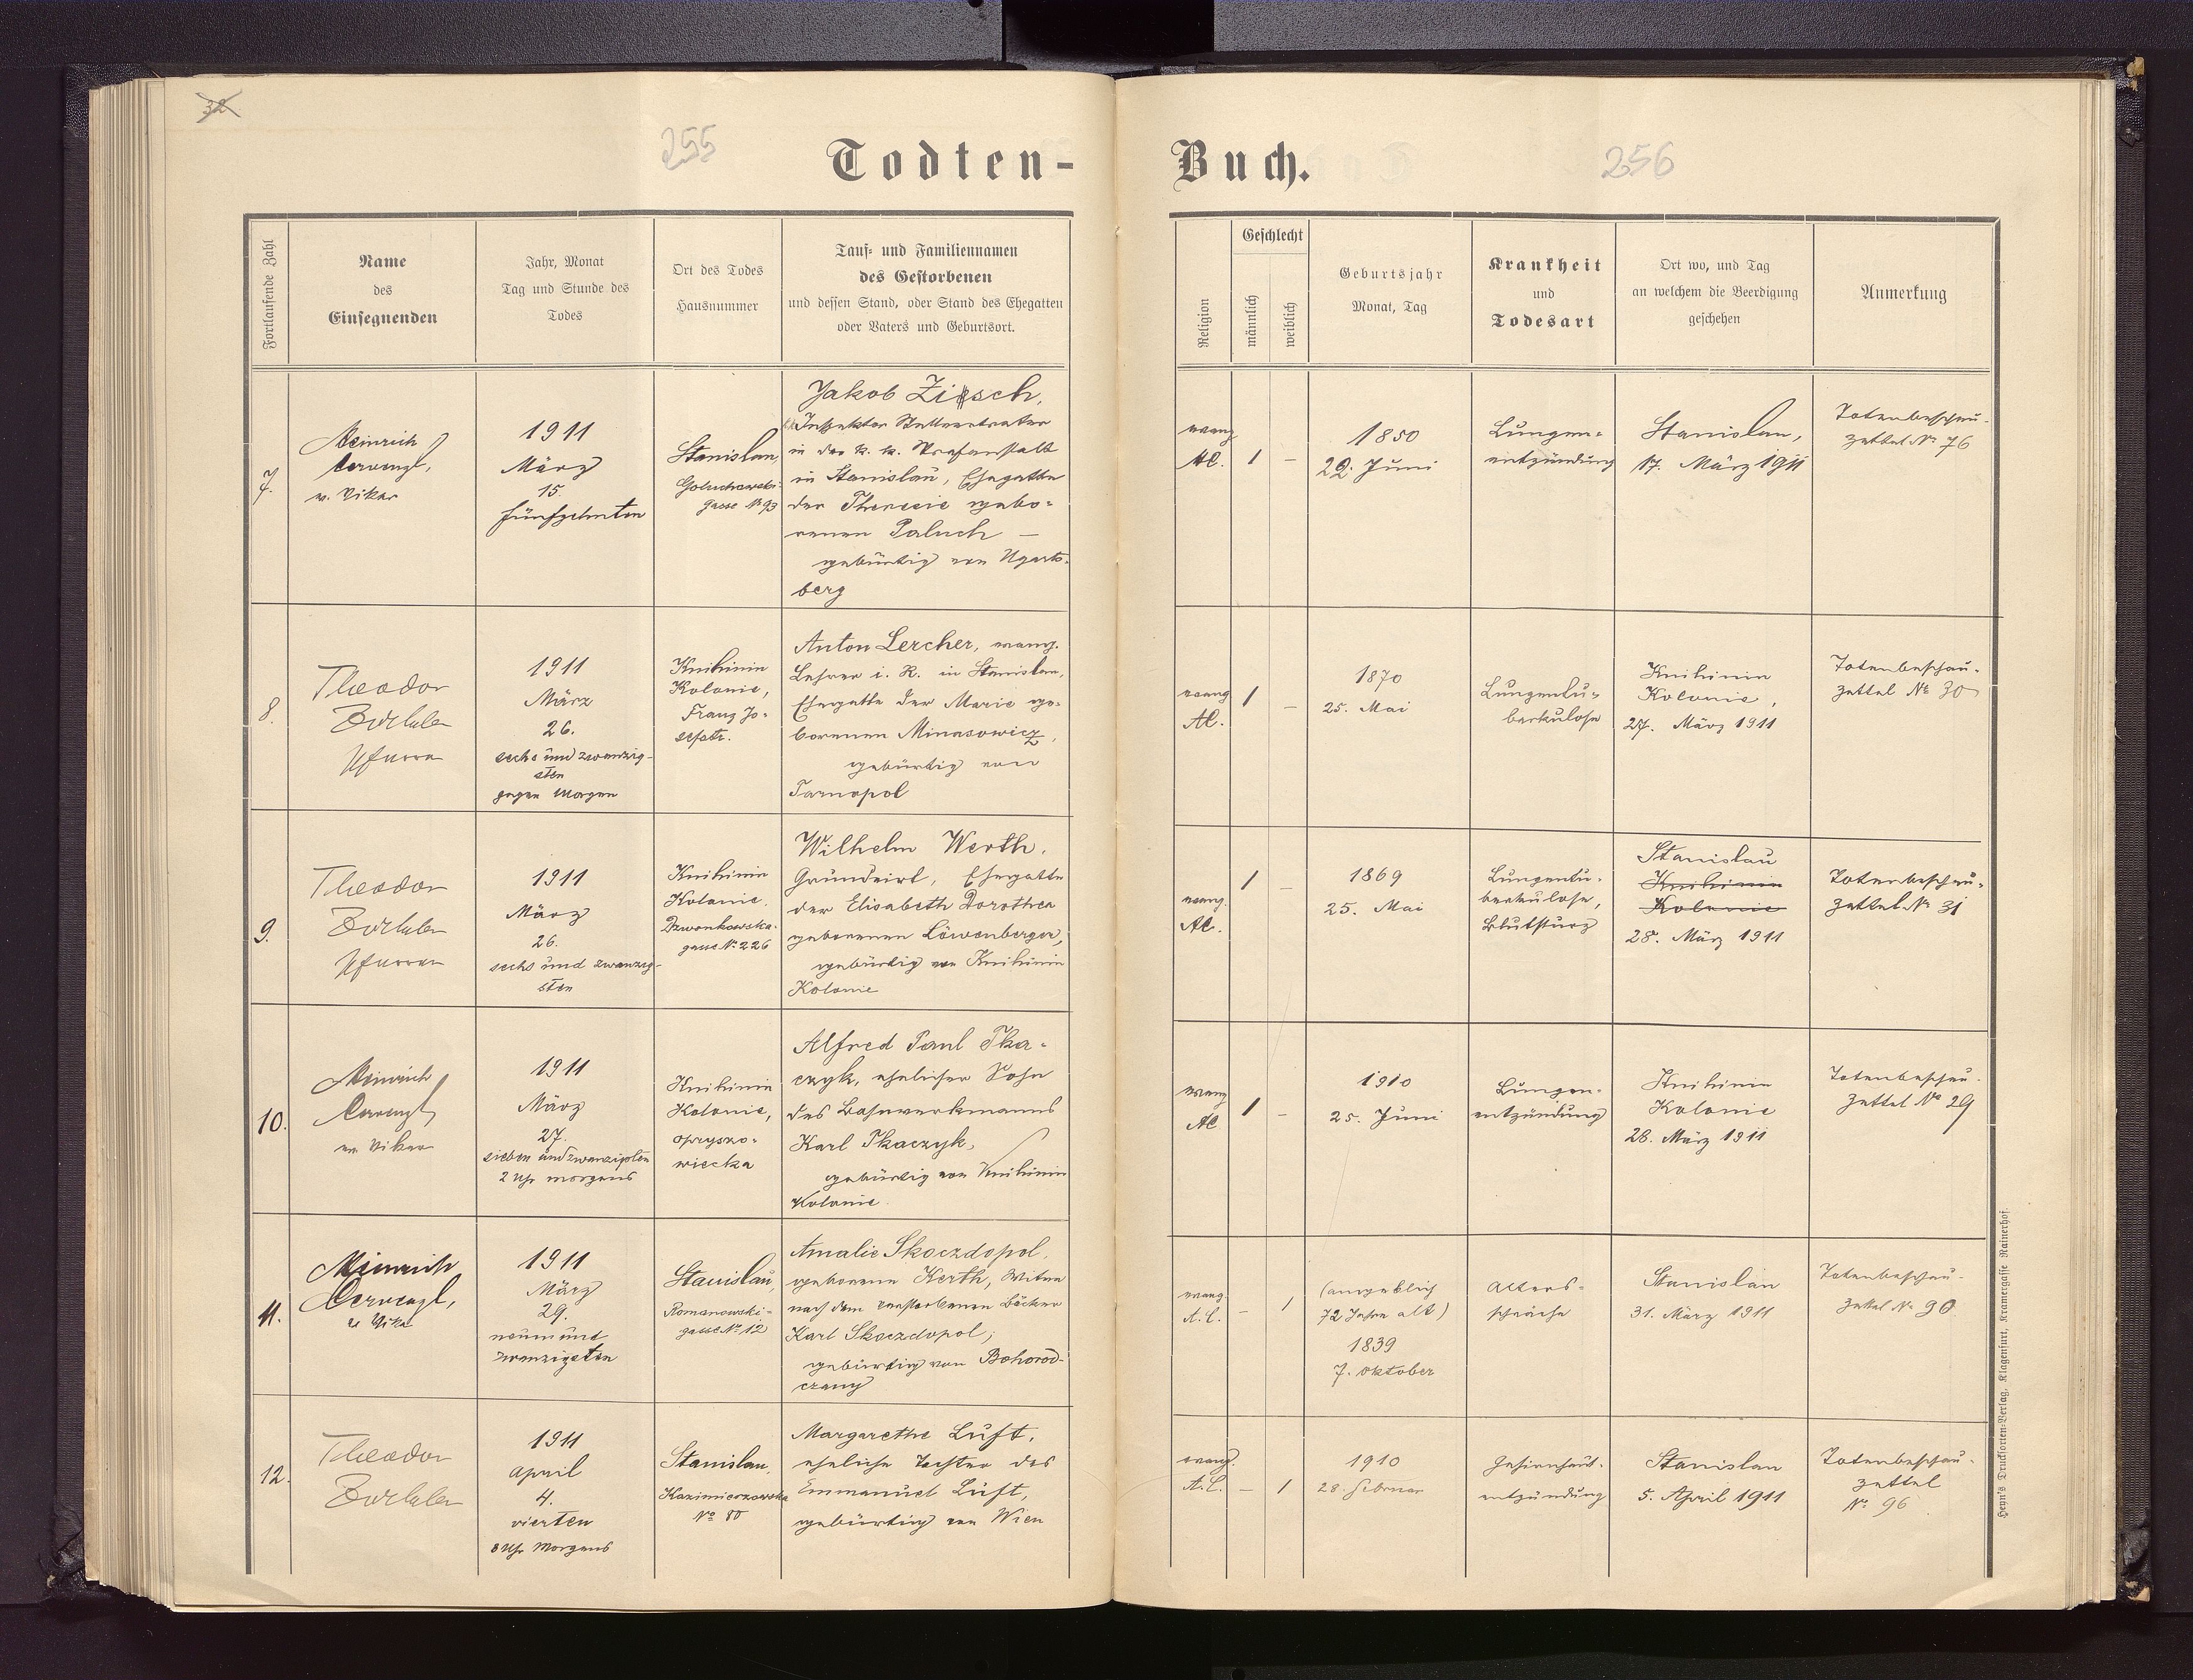 32
255
Todten-
Buch.
256
Fortlaufende Zahl
Name
des
Einsegnenden
Jahr, Monat
Tag und Stunde des
Todes
Ort des Todes
Hausnummer
Tauf- und Familiennamen
des Gestorbenen
und dessen Stand, oder Stand des Ehegatten
oder Vaters und Geburtsort.
Religion
Geschlecht
männlich
weiblich
Geburtsjahr
Monat, Tag
Krankheit
und
Todesart
Ort wo, und Tag
an welchem die Beerdigung
geschehen
Anmerkung
7.
Heinrich
v. Vikar
1911
März
15.
fünfzehnten
Stanislau,
Goluchowski-
gasse № 93
Jakob Zirsch,
Inspektor Stellvertreter
in der k. k. Strafanstalt
in Stanislau, Ehegatte
der Theresie gebo-
renen Paluch —
gebürtig von Ugarts-
berg
evang
AC.
1
–
1850
22. Juni
Lungen-
entzündung
Stanislau,
17. März 1911
Totenbeschau-
zettel № 76
8.
Theodor
Zöckler
Pfarrer
1911
März
26.
sechs und zwanzig-
sten
gegen Morgen
Knihinin
Kolonie,
Franz Jo-
sefstr.
Anton Lercher, evang.
Lehrer i. R. in Stanislau,
Ehegatte der Marie ge-
borenen Minasowicz,
gebürtig von
Tarnopol
evang
AC.
1
–
1870
25. Mai
Lungentu-
berkulose
Knihinin
Kolonie,
27. März 1911
Totenbeschau-
zettel № 30
9.
Theodor
Zöckler
Pfarrer
1911
März
26.
sechs und zwanzig-
sten
Knihinin
Kolonie.
Dzwonkowska-
gasse № 226
Wilhelm Werth,
Grundwirt, Ehegatte
der Elisabeth Dorothea
geborenen Löwenberger,
gebürtig von Knihinin
Kolonie
evang.
AC.
1
–
1869
25. Mai
Lungentu-
berkulose,
Blutsturz
Stanislau
Knihinin
Kolonie
28. März 1911
Totenbeschau-
zettel № 31
10.
Heinrich
ev Vikar
1911
März
27.
sieben und zwanzigsten
2 Uhr morgens
Knihinin
Kolonie,
Opryszo-
wiecka
Alfred Paul Tka-
czyk, ehelicher Sohn
des Bahnwerkmanns
Karl Tkaczyk,
gebürtig von Knihinin
Kolonie
evang
AC
1
–
1910
25. Juni
Lungen-
entzündung
Knihinin
Kolonie
28. März 1911
Totenbeschau-
zettel № 29
11.
Heinrich
v Vikar
1911
März
29.
neunund
zwanzigsten
Stanislau,
Romanowski-
gasse № 12
Amalie Skoczdopol,
geborene Kerth, Witwe
nach dem verstorbenen Bäcker
Karl Skoczdopol;
gebürtig von Bohorod-
czany
evang
A.C.
–
1
(angeblich
72 Jahre alt)
1839
7. Oktober
Alters-
schwäche
Stanislau
31. März 1911
Totenbeschau-
zettel № 90
12.
Theodor
Zöckler
1911
April
4.
vierten
8 Uhr Morgens
Stanislau,
Kazimierzowska
№ 80
Margarethe Luft,
eheliche Tochter des
Emmanuel Luft,
gebürtig von Wien
evang.
A.C.
–
1
1910
28. Februar
Gehirnhaut-
entzündung
Stanislau
5. April 1911
Totenbeschau-
zettel
№ 96
Heyn's Drucksorten-Verlag, Klagenfurt, Kramergasse Rainerhof.